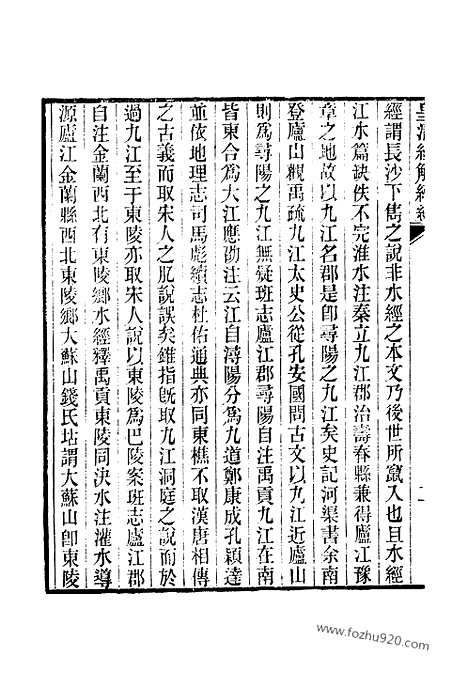 皇清經解續編
經謂長沙下雋之說非水經之本文乃後世所竄入也且水經
江水篇缺佚不完淮水注秦立九江郡治壽春縣兼得廬江豫
章之地故以九江名郡是卽尋陽之九江矣史記河渠書余南
登廬山觀禹疏九江太史公從孔安國問古文以九江近廬山
則爲尋陽之九江無疑班志廬江郡尋陽自注禹貢九江在南
皆東合爲大江應劭注云江自潯陽分爲九道鄭康成孔穎達
並依地理志司馬彪續志杜佑通典亦同東樵不取漢唐相傳
之古義而取宋人之肊說誤矣錐指旣取九江洞庭之說而於
過九江至于東陵亦取宋人說以東陵爲巴陵案班志廬江郡
自注金蘭西北有東陵鄉水經釋禹貢東陵同決水注灌水導
源廬江金蘭縣西北東陵鄉大蘇山錢氏坫謂大蘇山卽東陵
www.fozhu920.com